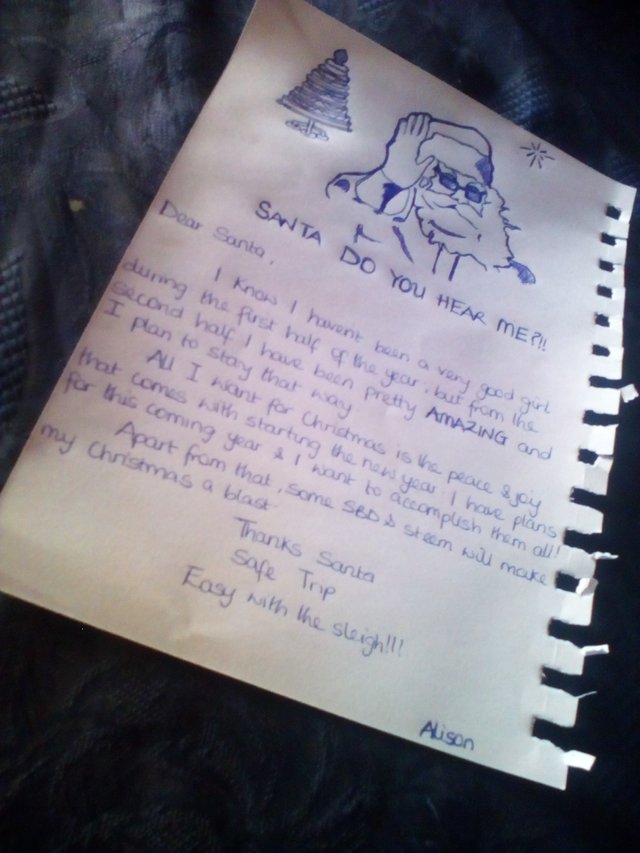 SANTA DO YOU HEAR ME?!!
Dear Santa,
I know I havent been a very good girl
during the first half of the year, but from the
second half I have been pretty AMAZING and
I plan to stay that way
All I want for Christmas is the peace & joy
that comes with starting the new year. I have plans
for this coming year & I want to accomplish them all!
Apart from that, some SBD & steem will make
my Christmas a blast
Thanks Santa
Safe Trip
Easy with the sleigh!!!
Alison